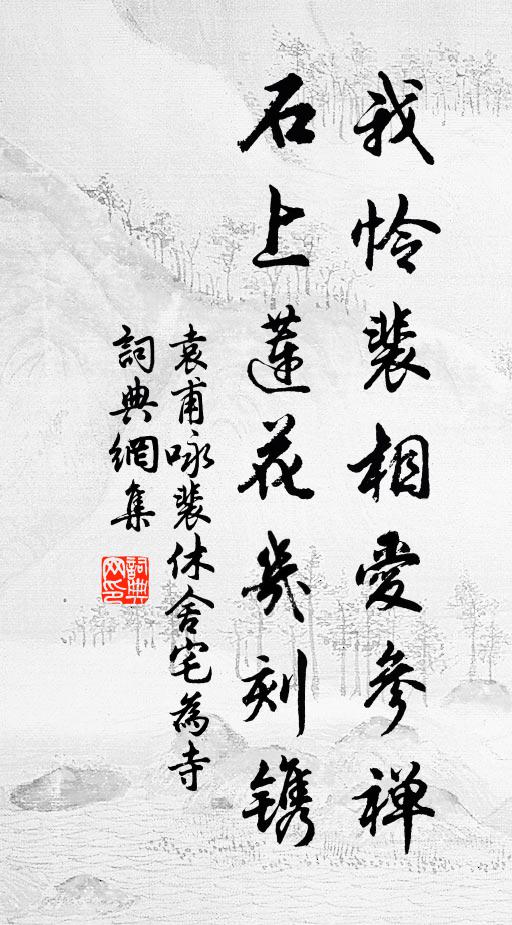 我怜裴相爱参禅
石上莲花几刻镌
袁甫咏裴休舍宅為寺
詞典網集
詞典网印